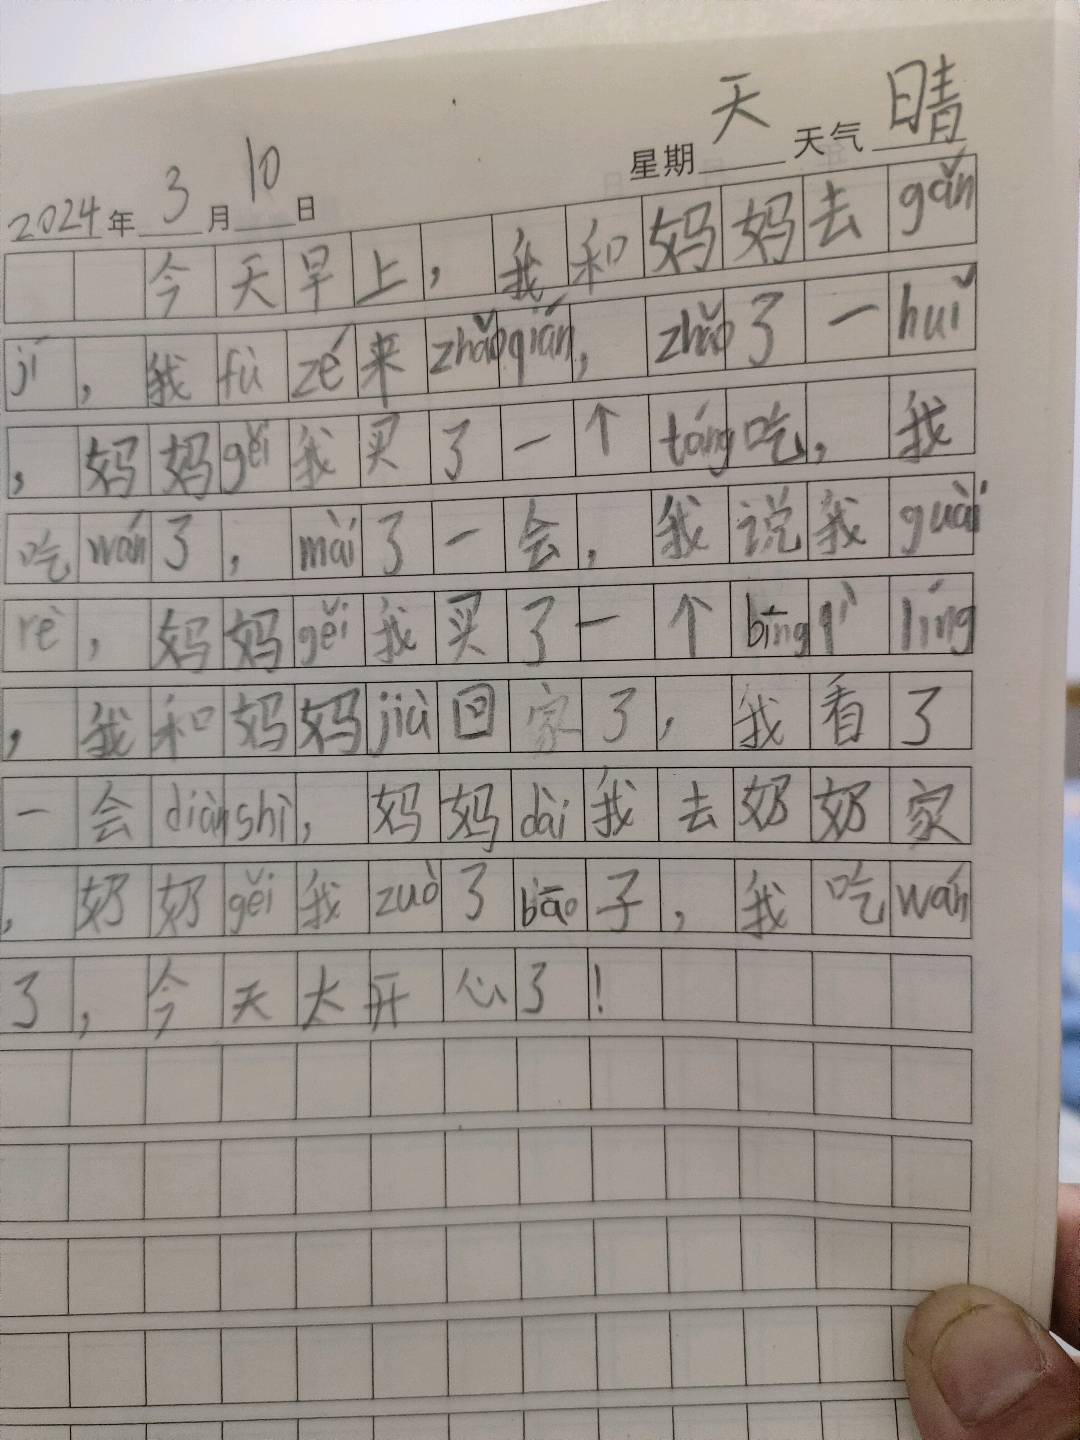 星期天 天气晴
2024年3月10日
今天早上，我和妈妈去gǎn
jí，我fù zé来zhǎoqián，zhǎo了一huǐ
，妈妈gěi我买了一个táng吃，我
吃wán了，mài了一会，我说我guài
rè，妈妈gěi我买了一个bīngqì líng
，我和妈妈jiù回家了，我看了
一会diànshì，妈妈dài我去奶奶家
，奶奶gěi我zuò了bāo子，我吃wán
了，今天太开心了！